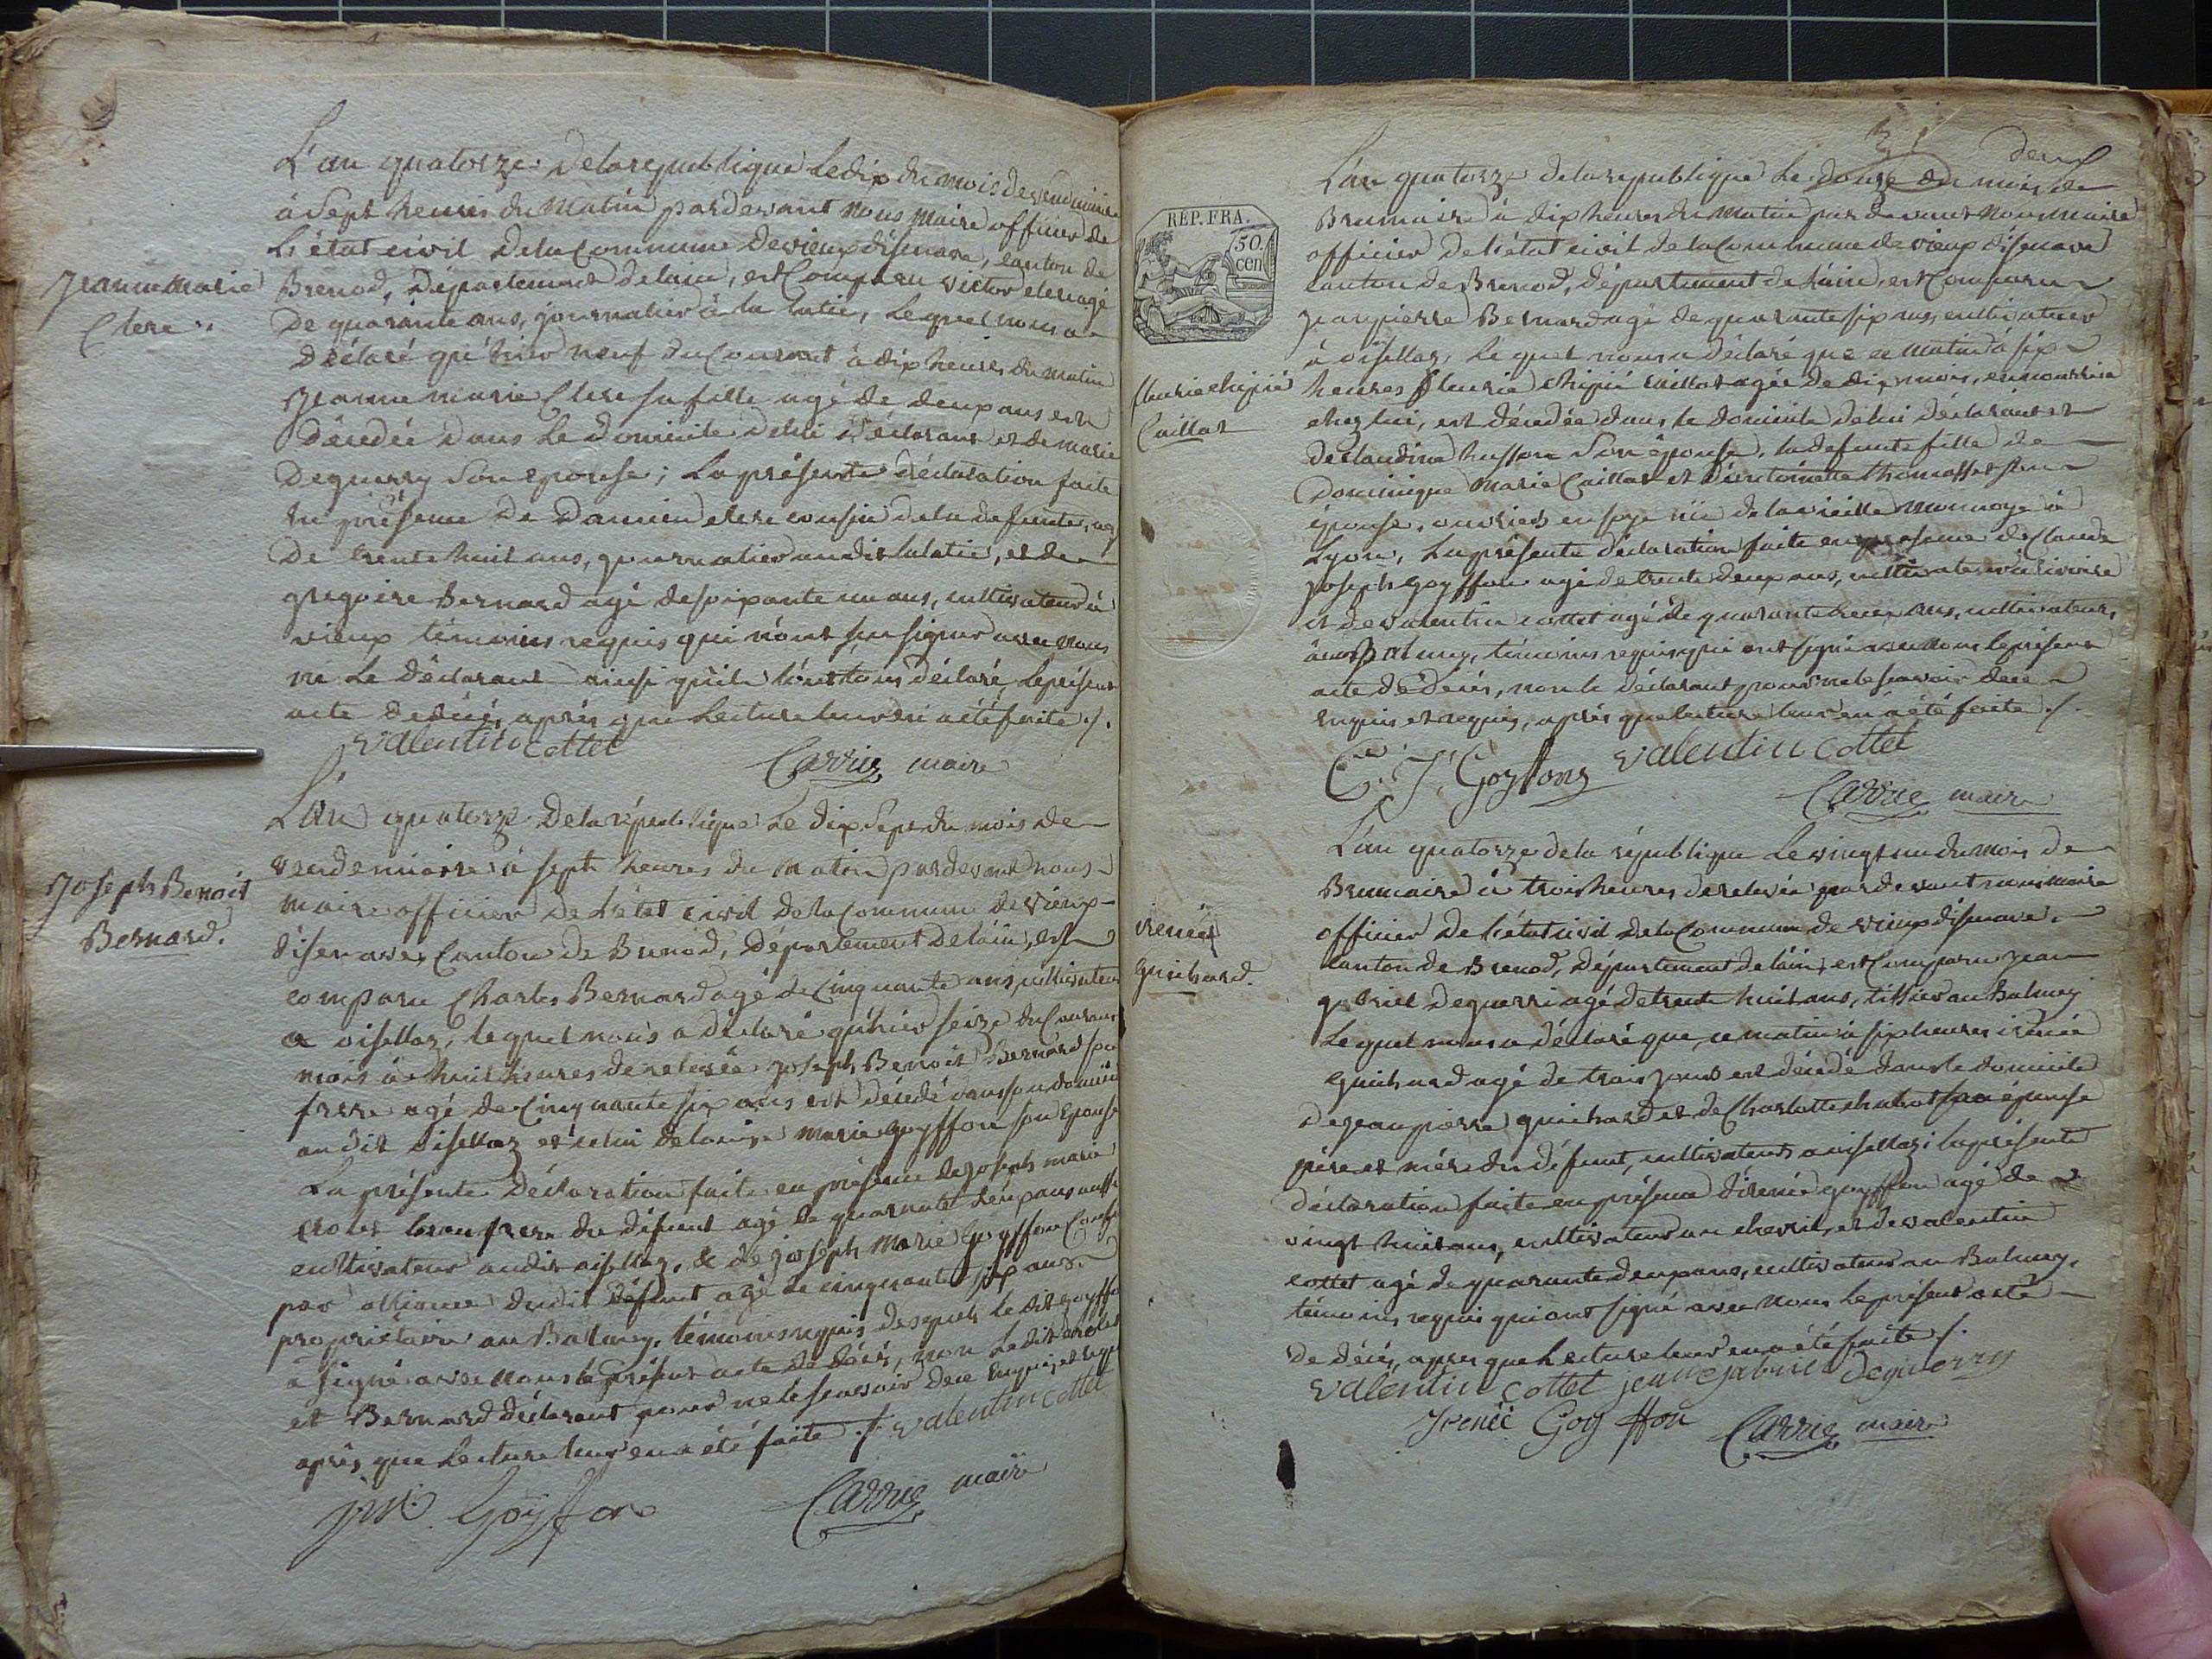 L'an quatorze de la republique Le dix du mois de vendemiaire
à Sept heures du Matin pardevant Nous Maire officier de
L'état civil De la Commune de vieux d'isenave, canton de
Brenod, Département de lain, est Comparu victor clere agé
De quarante ans, journalier à la lutie, Lequel nous a
Déclaré qu'hier neuf du Courant à dix heures du Matin
Jeanne marie Clere sa fille agé de deux ans est
Décedée dans Le Domicile de lui Déclarant et de marie
Deguerry Son epouse ; La présente déclaration faite
en présence De Damien clere cousin de la defunte, agé
De trente huit ans, journalier audit lalutie, et de
gregoire Bernard agé de soixante un ans, cultivateur à
vieux témoins requis qui n'ont sçu signer avec nous
ni Le Déclarant ainsi qu'ils l'ont tous déclaré, Le présent
acte de décés, après que Lecture leur en a été faite ./.
valentin cottet
Carrie maire
Jeanne Marie
Clere
L'an quatorze De la république Le dix Sept du mois de
vendemiaire à sept heures du Matin pardevant nous
maire officier de L'état civil de la Commune de vieux
d'isenave, Canton de Brenod, Département de lain, est
comparu Charles Bernard agé de Cinquante ans, cultivateur
a oisellaz, lequel nous a déclaré qu'hier seize du Courant
mois à huit heures de relevée Joseph Benoit Bernard son
frere agé de Cinquante six ans est décédé dans son domicile
audit oisellaz et celui de louise Marie goyffon son Epouse
La présente Déclaration faite en présence de joseph marie
beaufrere du défunt agé de quarante deux ans aussi
cultivateur audit oisellaz, & de joseph Marie goyffon
par alliance dudit défunt agé de cinquante six ans
propriétaire au Balmay, témoins requis desquels ledit goyffon
a signé avec nous le présent acte de décés, non Le dit
et Bernard déclarant pour ne le scavoir de ce enquis et requis
après que Lecture leur en a été faite ./. valentin cottet
jh M. Goÿffon
Carrie maire
Joseph Benoit
Bernard.
L'an quatorze de la republique Le douze du mois de
Brumaire à dix heures du Matin par devant Nous maire
officier de l'état civil de la Commune de vieux d'isenave
canton de Brenod, département de lain, est Comparu
jean pierre Bernard agé de quarante six ans, cultivateur
à oisellaz, Lequel nous a déclaré que ce matin à six
heures fleurie chipié caillat agée de dix mois, en nourrice
chez lui, est décedée dans le domicile de lui déclarant et
de claudine husson Son épouse, la defunte fille de
Dominique Marie Caillat et d'antoinette thomasset son
épouse, ouvriers en soye rüe de la vieille Monnoye à
Lyon, La présente déclaration faite en présence de Claude
joseph goyffon agé de trente deux ans, cultivateur
et de valentin cottet agé de quarante deux ans, cultivateur,
Balmay, témoins requis qui ont signé avec nous le présent
acte de décés, non le déclarant pour ne le scavoir de ce
enquis et requis, après que lecture leur en a été faite ./.
C. J. Goyffong valentin cottet
Carrie maire
REP. FRA.
50
cen
fleurie chipié
Caillat
L'an quatorze de la république Le vingt un du mois de
Brumaire à trois heures de relevée pardevant nous maire
officier de l'état civil de la Commune de vieux d'isenave
canton de Brenod, département de lain, est Comparu jean
gabriel deguerri agé de trente huit ans, tissier au Balmay
Lequel nous a déclaré que, ce matin à six heures irénée
guichard agé de trois jours est décédé dans le domicile
de jean pierre guichard et de Charlotte chabot son épouse
père et mère du défunt, cultivateurs a oisellaz ; la présente
déclaration faite en présence d'irénée goyffon agé de
vingt huit ans, cultivateur au chevril, et de valentin
cottet agé de quarante deux ans, cultivateur au Balmay,
témoins, requis qui ont signé avec nous le présent acte
de décés, apres que Lecture leur en a été faite ./.
valentin cottet jean gabriel deguerry
Irenée Goyffon Carrie maire
irénée
guichard.